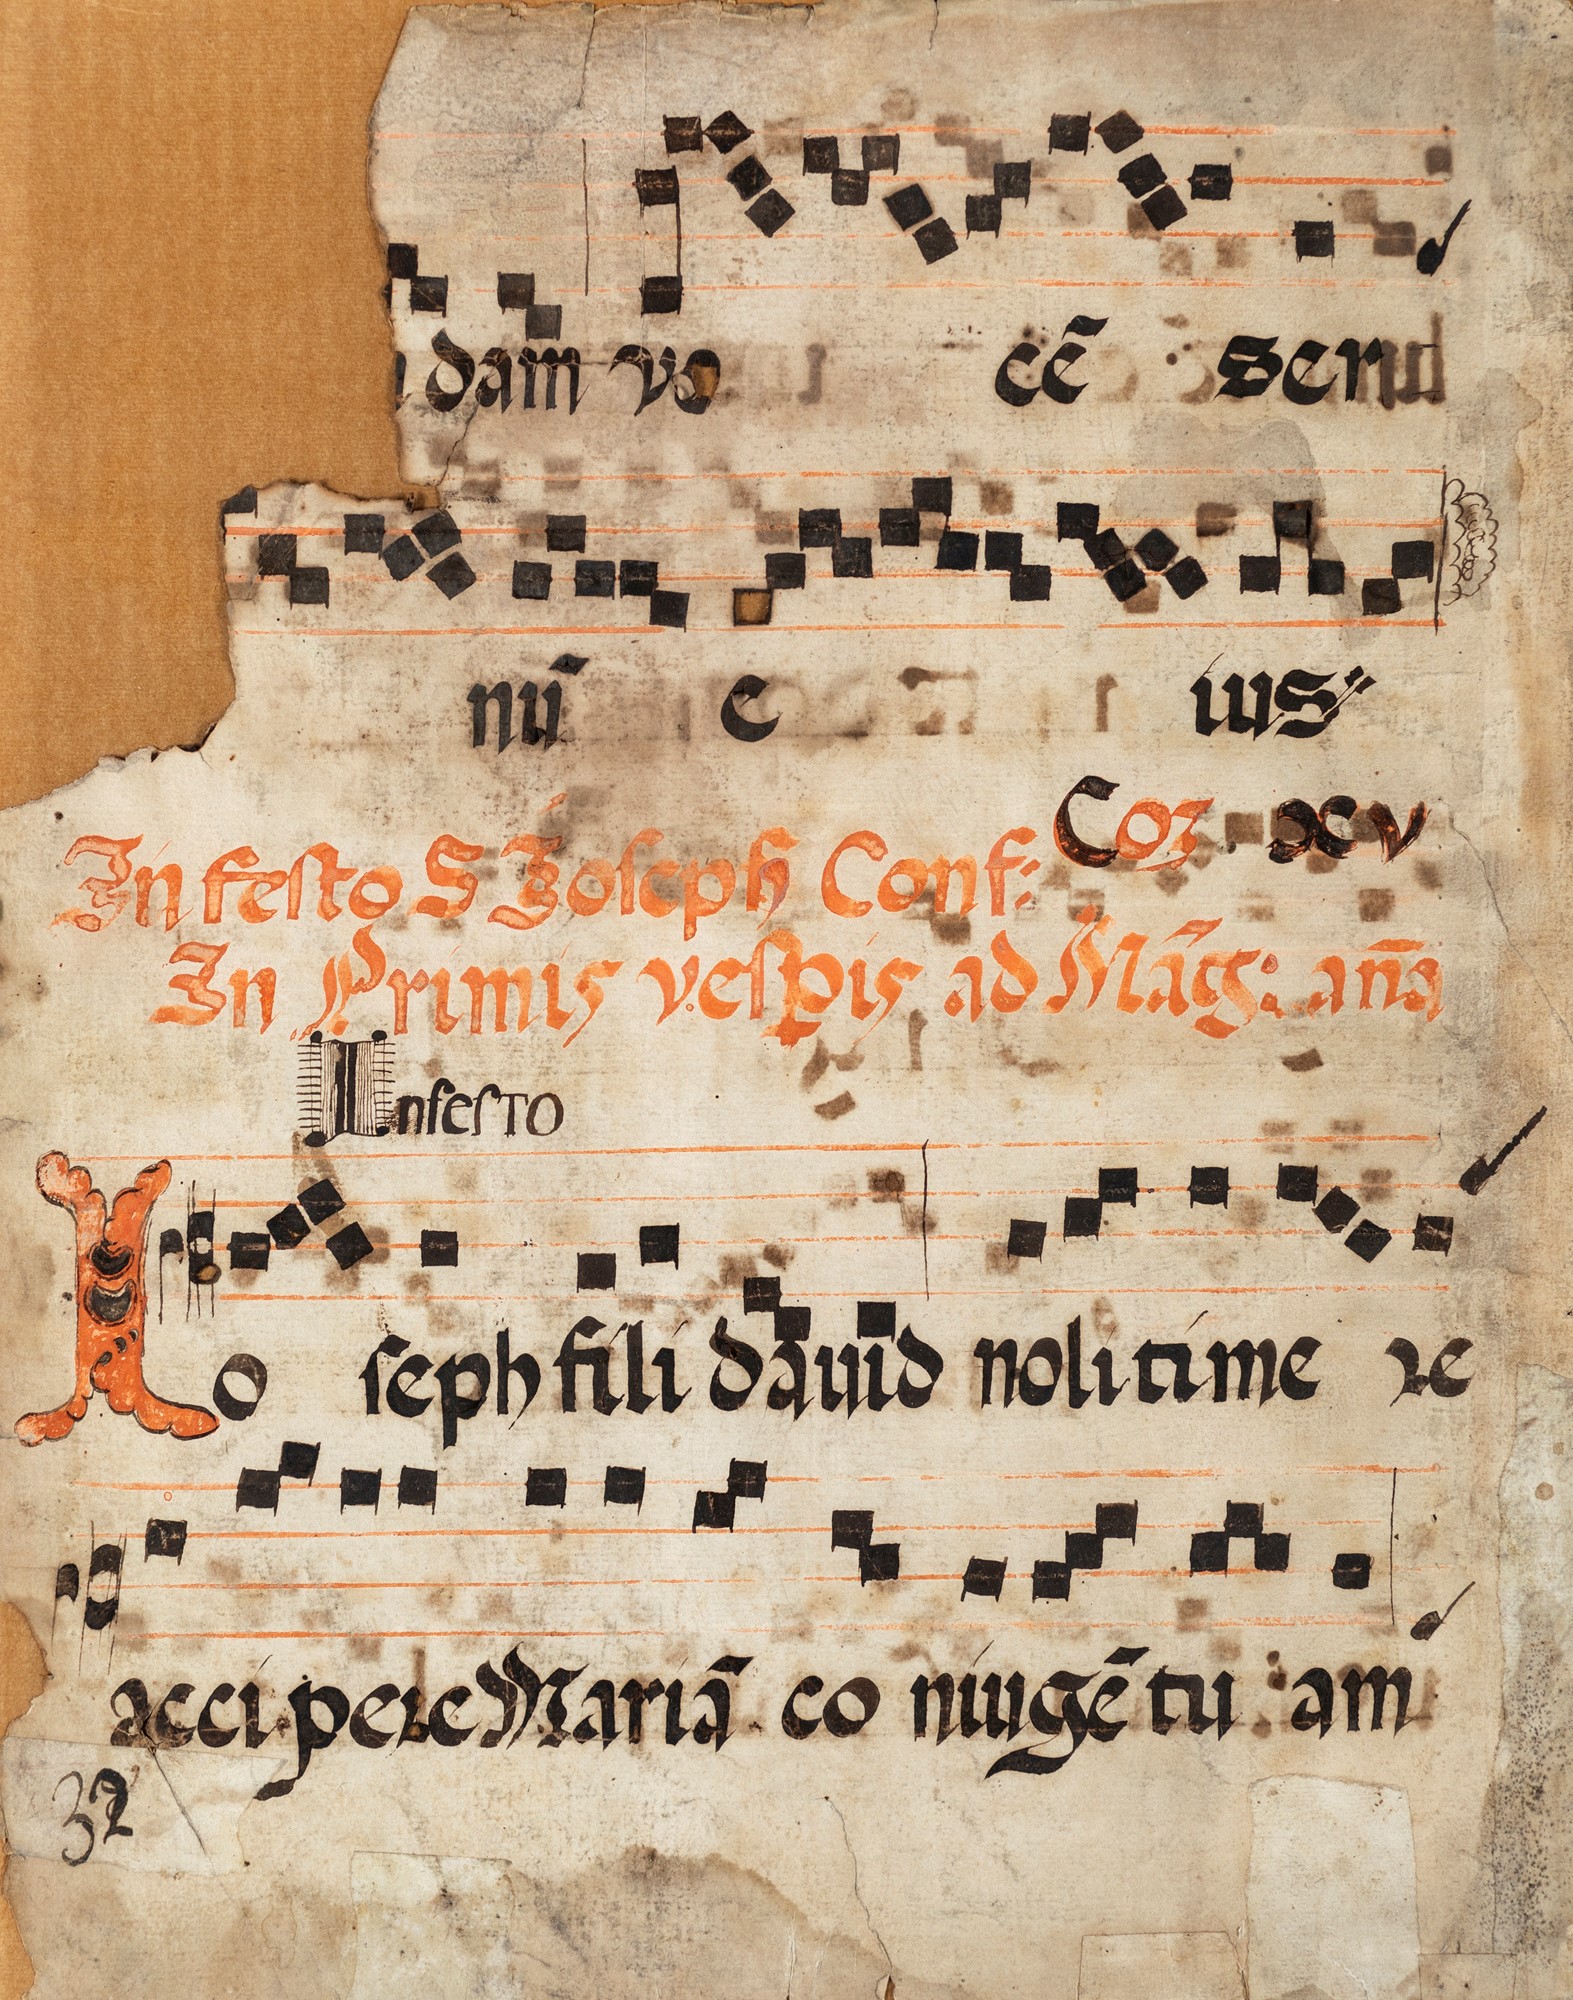 dam vo cē ser
nū e ius
Coꝝ xv
In festo S Joseph Conf:
In Primis vesꝑis ad Mãg: aña
Infesto
Io seph fili dauid noli time ꝛe
accipeꝛe Mariā co niugē tu am
32